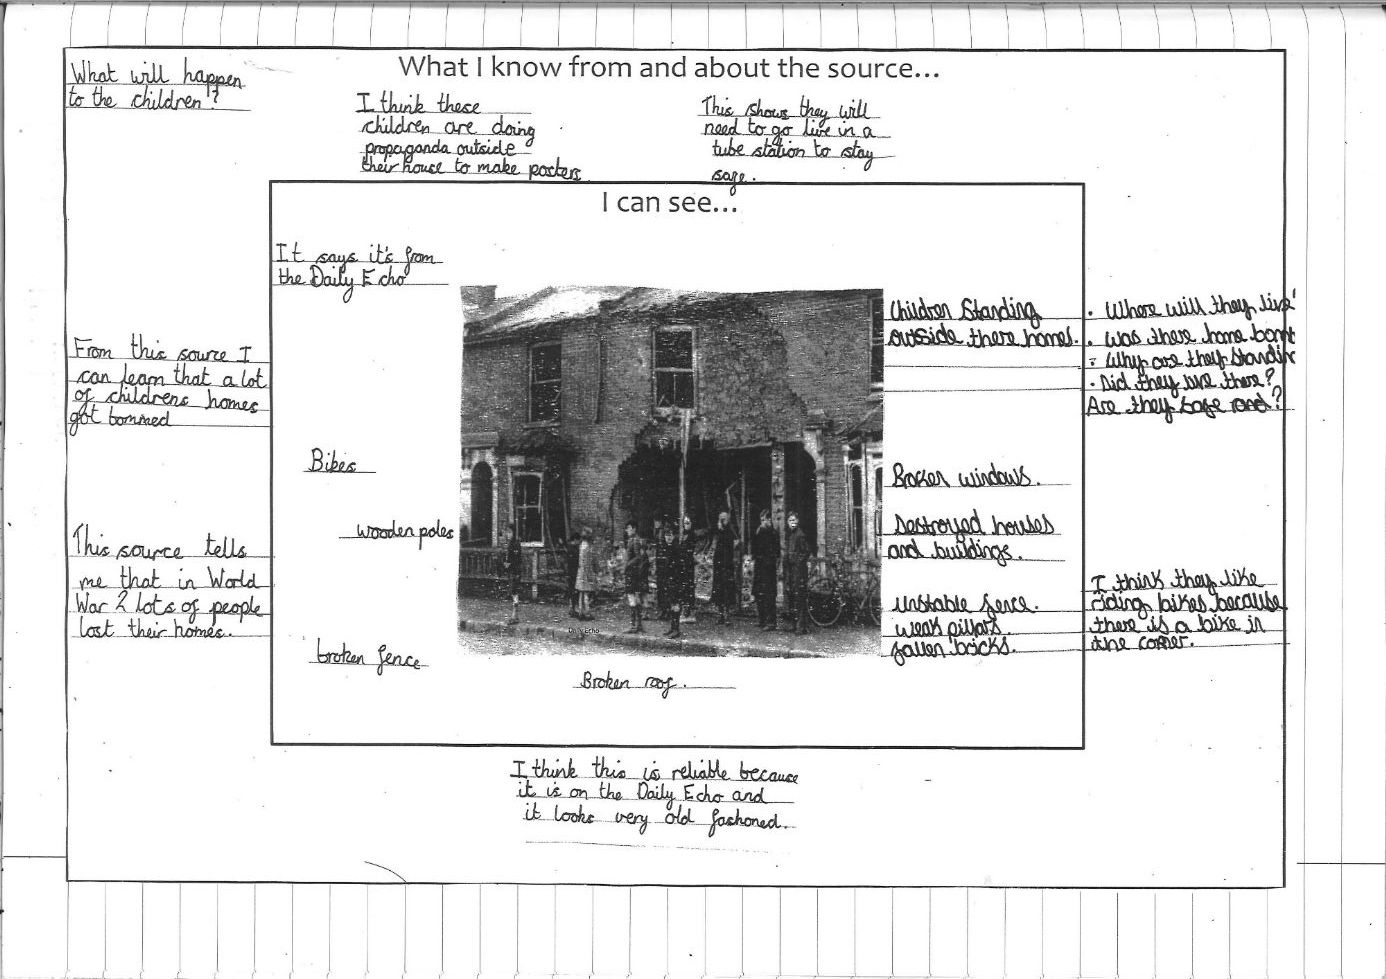 What I know from and about the source...
What will happen
to the children?
I think these
children are doing
propaganda outside
their house to make posters
This shows they will
need to go live in a
tube station to stay
safe.
I can see...
It says it's from
the Daily Echo
Children Standing
outside there homes.
. Where will they live
. Was there home bomb
. Why are they standin
. Did they live there?
Are they safe and?
From this source I
can learn that a lot
of childrens homes
got bommed
Bikes
Broken windows.
wooden poles
Destroyed houses
and buildings.
This source tells
me that in World
War 2 lots of people
lost their homes.
unstable fence.
weak pillars.
fallen bricks.
I think they like
riding bikes because
there is a bike in
the corner.
Daily Echo
broken fence
Broken roof.
I think this is reliable because
it is on the Daily Echo and
it looks very old fashoned.